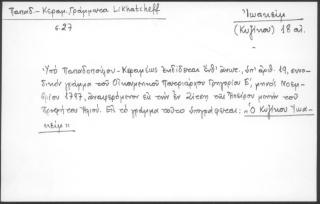 Παπαδ.-Κεραμ. Γράμματα Likhatcheff
σ. 27
Ἰωακείμ
(Κυζίκου) 18 αἰ.
Ὑπὸ Παπαδοπούλου-Κεραμέως ἐκδίδεται ἔνθ' ἀνωτ., ὑπ' ἀριθ. 19, συνο-
δικὸν γράμμα τοῦ Οἰκουμενικοῦ Πατριάρχου Γρηγορίου Ε', μηνὸς Νοεμ-
βρίου 1797, ἀναφερόμενον εἰς τὴν ἐν Ζίτσῃ τῆς Ἠπείρου μονὴν τοῦ
Προφήτου Ἠλιού. Εἰς τὸ γράμμα τοῦτο ὑπογράφεται: «Ὁ Κυζίκου Ἰωα-
κεὶμ»